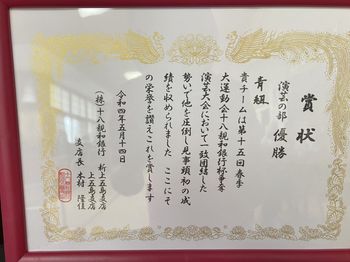 賞状
演芸の部 優勝
青組
貴チームは第十五回春季
大運動会十八親和銀行杯争奪
演芸大会において一致団結した
勢いで他を圧倒し見事頭初の成
績を収められました ここにそ
の栄誉を讃えこれを賞します
令和四年五月十四日
(株)十八親和銀行 新上五島支店
上五島支店
支店長 木村 隆佳